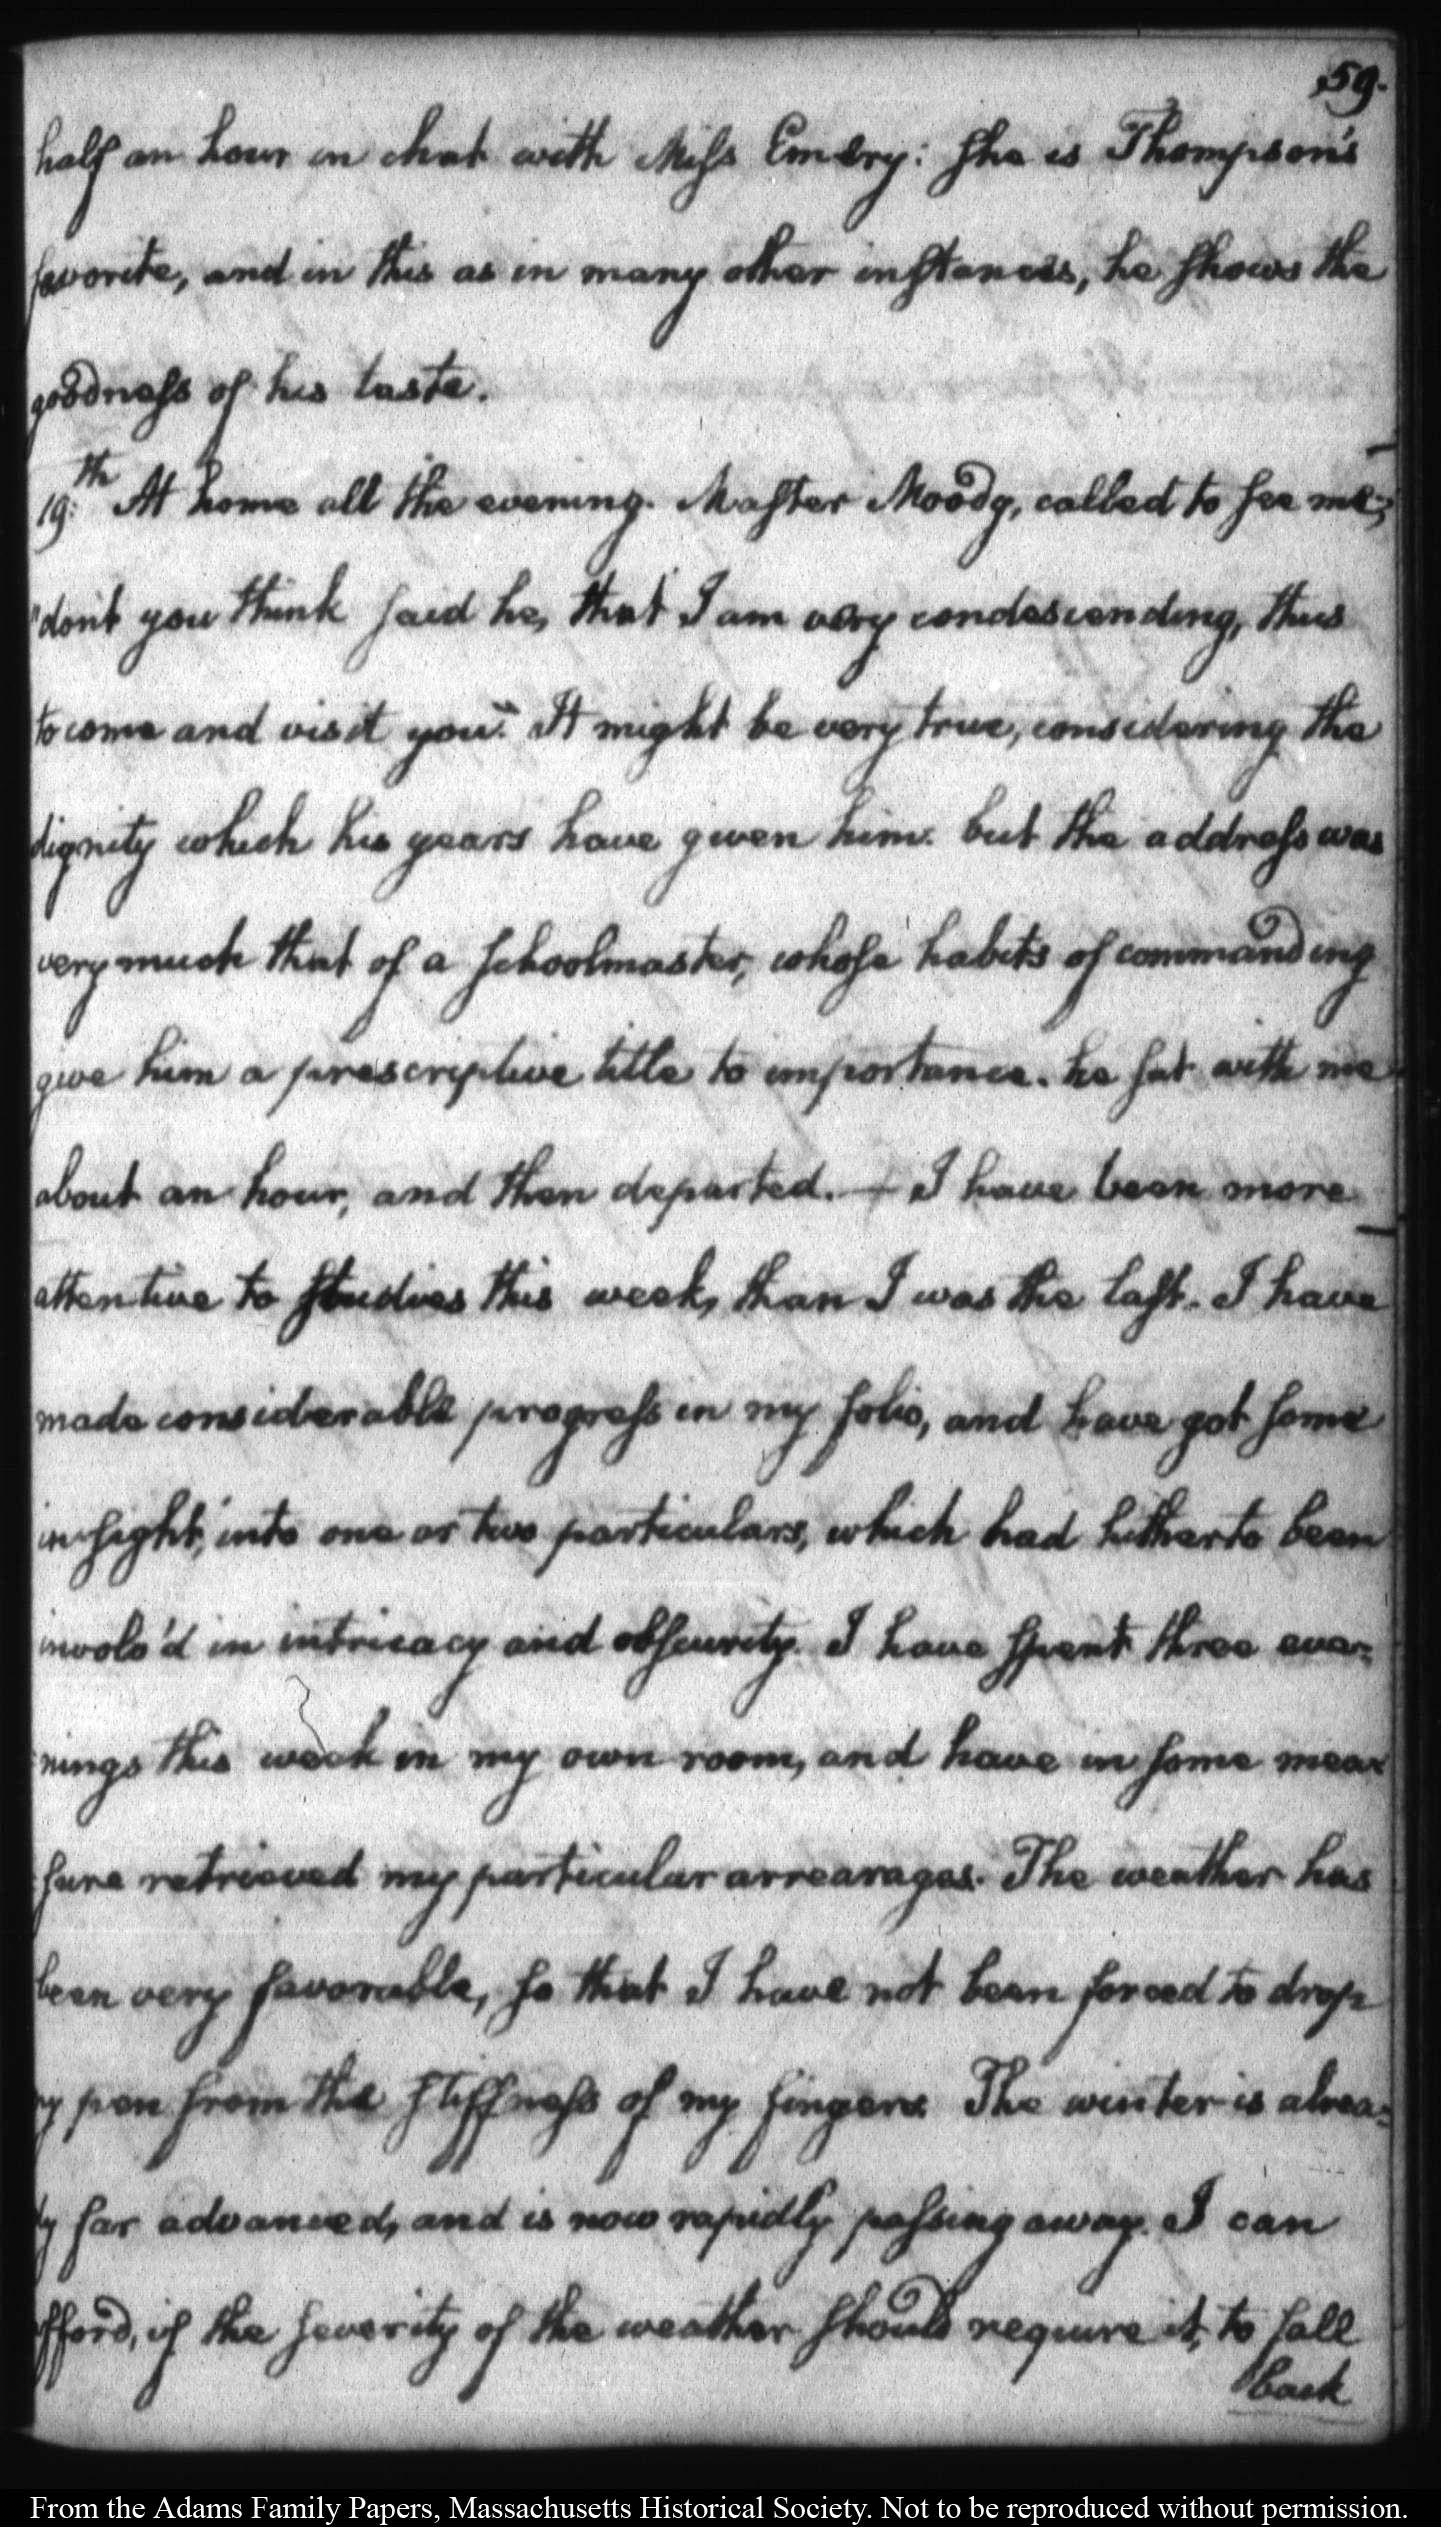 59.
half an hour in chat with Miss Emery: she is Thompson's
favorite, and in this as in many other instances, he shows the
goodness of his taste.
19:th At home all the evening. Master Moody, called to see me;
"don't you think said he, that I am very condescending, thus
to come and visit you." It might be very true, considering the
dignity which his years have given him: but the address was
very much that of a schoolmaster, whose habits of commanding
give him a prescriptive title to importance. he sat with me
about an hour, and then departed. — I have been more
attentive to studies this week, than I was the last. I have
made considerable progress in my folio, and have got some
insight, into one or two particulars, which had hitherto been
involv'd in intricacy and obscurity. I have spent three eve=
nings this week in my own room, and have in some mea=
sure retrieved my particular arrearages. The weather has
been very favorable, so that I have not been forced to drop
my pen from the stiffness of my fingers. The winter is alrea=
dy far advanced, and is now rapidly passing away. I can
afford, if the severity of the weather should require it, to fall
back
From the Adams Family Papers, Massachusetts Historical Society. Not to be reproduced without permission.